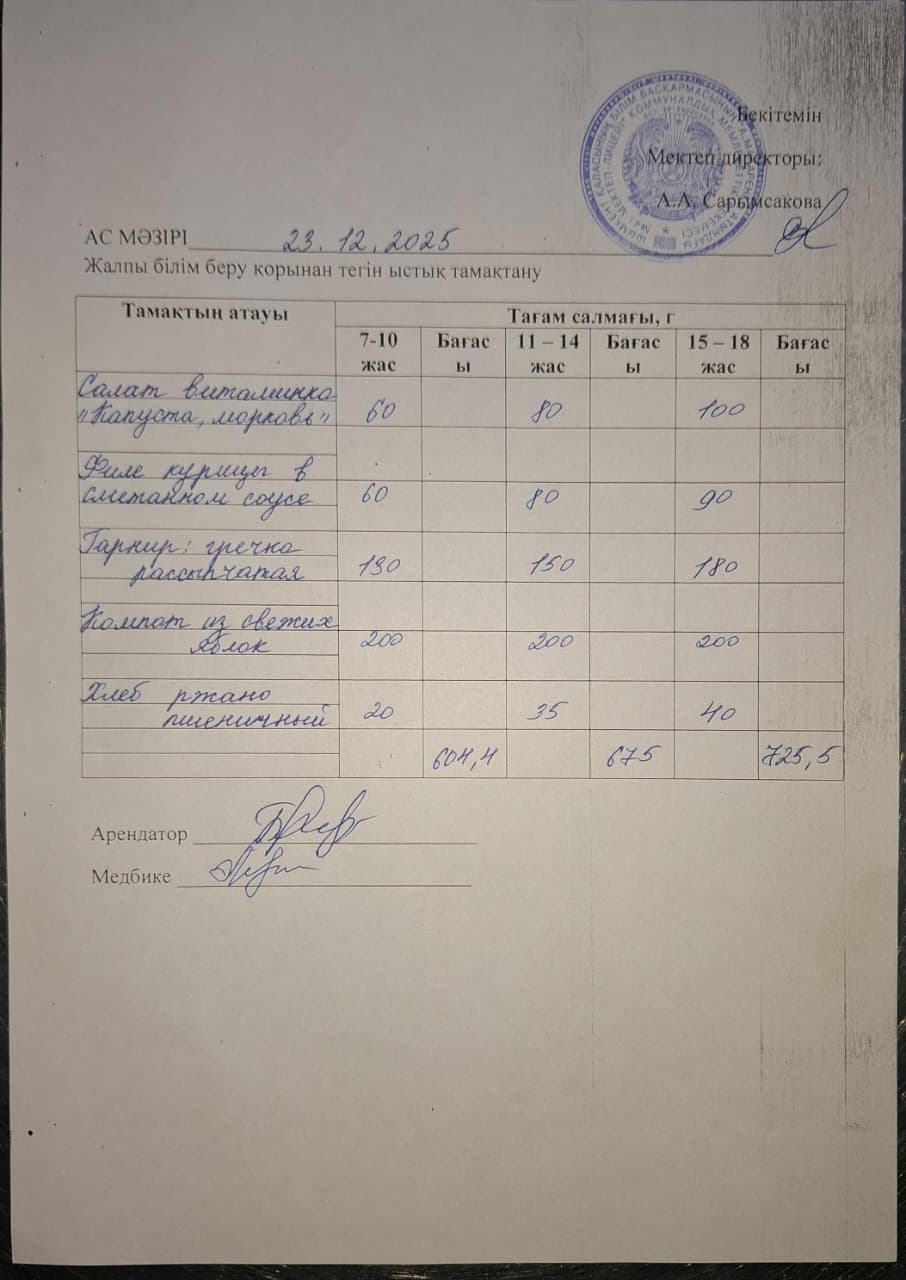 Бекітемін
Мектеп директоры:
А.А. Сарымсакова
АС МӘЗІРІ 23.12.2025
Жалпы білім беру қорынан тегін ыстық тамақтану
Тамақтың атауы Тағам салмағы, г
7-10 жас Бағасы 11 – 14 жас Бағасы 15 – 18 жас Бағасы
Салат витаминка
"Капуста, морковь" 60 80 100
Филе курицы в
сметанном соусе 60 80 90
Гарнир: гречка
рассыпчатая 130 150 180
Компот из свежих
яблок 200 200 200
Хлеб ржано
пшеничный 20 35 40
604,4 675 725,5
Арендатор
Медбике